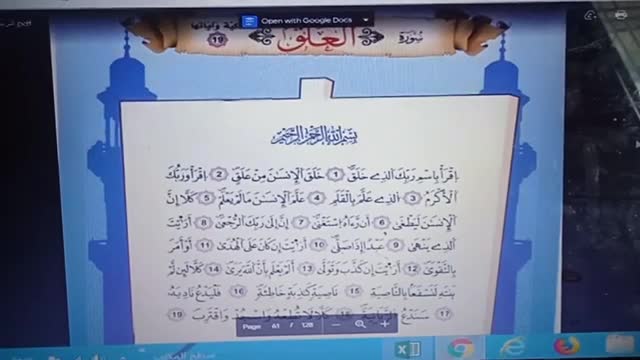 .pdf
Open with Google Docs
سورة العلق
19
بسم الله الرحمن الرحيم
اِقْرَأْ بِاسْمِ رَبِّكَ الَّذِي خَلَقَ 1 خَلَقَ الْإِنسَٰنَ مِنْ عَلَقٍ 2 اِقْرَأْ وَرَبُّكَ
الْأَكْرَمُ 3 الَّذِي عَلَّمَ بِالْقَلَمِ 4 عَلَّمَ الْإِنسَٰنَ مَا لَمْ يَعْلَمْ 5 كَلَّا إِنَّ
الْإِنسَٰنَ لَيَطْغَىٰ 6 أَن رَّءَاهُ اسْتَغْنَىٰ 7 إِنَّ إِلَىٰ رَبِّكَ الرُّجْعَىٰ 8 أَرَءَيْتَ
الَّذِي يَنْهَىٰ 9 عَبْدًا إِذَا صَلَّىٰ 10 أَرَءَيْتَ إِن كَانَ عَلَى الْهُدَىٰ 11 أَوْ أَمَرَ
بِالتَّقْوَىٰ 12 أَرَءَيْتَ إِن كَذَّبَ وَتَوَلَّىٰ 13 أَلَمْ يَعْلَم بِأَنَّ اللَّهَ يَرَىٰ 14 كَلَّا لَئِن لَّمْ
يَنتَهِ لَنَسْفَعًا بِالنَّاصِيَةِ 15 نَاصِيَةٍ كَٰذِبَةٍ خَاطِئَةٍ 16 فَلْيَدْعُ نَادِيَهُ
17 سَنَدْعُ الزَّبَانِيَةَ كَلَّا لَا تُطِعْهُ وَاسْجُدْ وَاقْتَرِب 19
Page 61 / 128